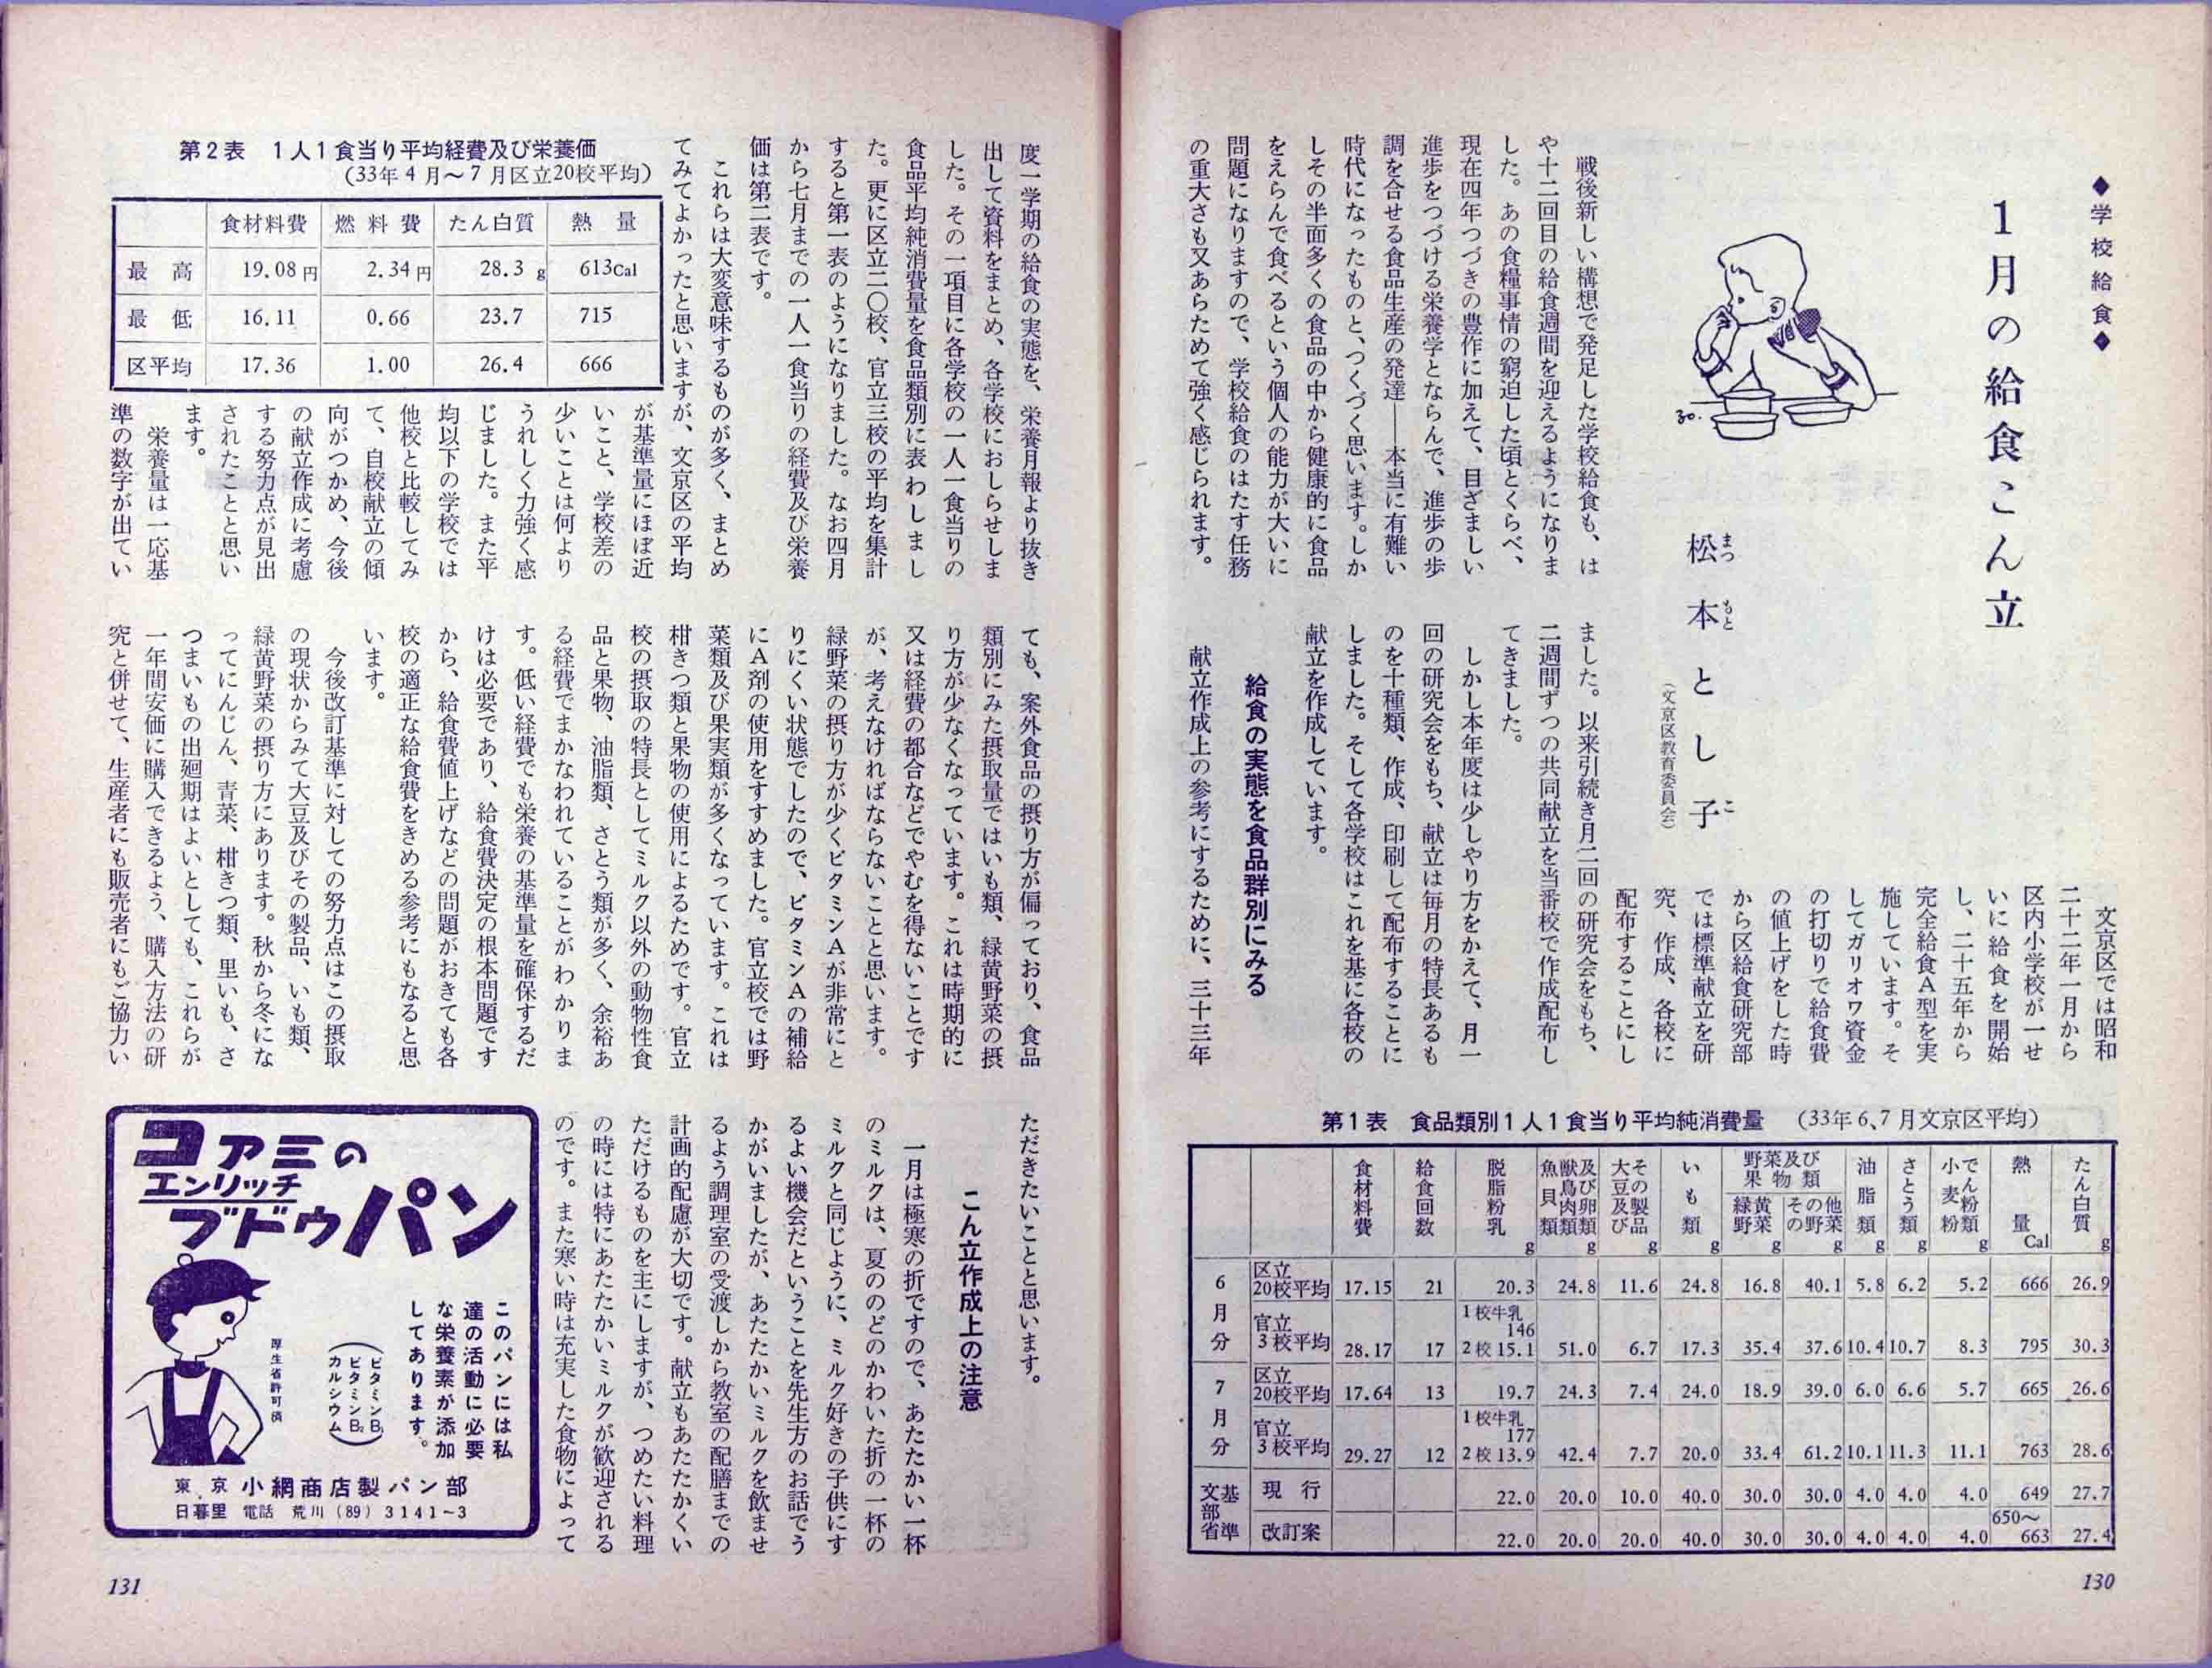 ◆学校給食◆
1月の給食こん立
松本とし子
まつもとこ
(文京区教育委員会)
30.
戦後新しい構想で発足した学校給食も、は
や十二回目の給食週間を迎えるようになりま
した。あの食糧事情の窮迫した頃とくらべ、
現在四年つづきの豊作に加えて、目ざましい
進歩をつづける栄養学とならんで、進歩の歩
調を合せる食品生産の発達――本当に有難い
時代になったものと、つくづく思います。しか
しその半面多くの食品の中から健康的に食品
をえらんで食べるという個人の能力が大いに
問題になりますので、学校給食のはたす任務
の重大さも又あらためて強く感じられます。
文京区では昭和
二十二年一月から
区内小学校が一せ
いに給食を開始
し、二十五年から
完全給食A型を実
施しています。そ
してガリオワ資金
の打切りで給食費
の値上げをした時
から区給食研究部
では標準献立を研
究、作成、各校に
配布することにし
ました。以来引続き月二回の研究会をもち、
二週間ずつの共同献立を当番校で作成配布し
てきました。
しかし本年度は少しやり方をかえて、月一
回の研究会をもち、献立は毎月の特長あるも
のを十種類、作成、印刷して配布することに
しました。そして各学校はこれを基に各校の
献立を作成しています。
給食の実態を食品群別にみる
献立作成上の参考にするために、三十三年
第1表 食品類別1人1食当り平均純消費量 (33年6、7月文京区平均)
食材料費 給食回数 脱脂粉乳g 魚貝類 獣鳥肉類及び卵類g 大豆及びその製品g いも類g 野菜及び果物類 緑黄野菜g その他の野菜g 油脂類g さとう類g 小麦粉 でん粉類g 熱量Cal たん白質g
6月分 区立20校平均 17.15 21 20.3 24.8 11.6 24.8 16.8 40.1 5.8 6.2 5.2 666 26.9
官立3校平均 28.17 17 1校牛乳146 2校15.1 51.0 6.7 17.3 35.4 37.6 10.4 10.7 8.3 795 30.3
7月分 区立20校平均 17.64 13 19.7 24.3 7.4 24.0 18.9 39.0 6.0 6.6 5.7 665 26.6
官立3校平均 29.27 12 1校牛乳177 2校13.9 42.4 7.7 20.0 33.4 61.2 10.1 11.3 11.1 763 28.6
文部省基準 現行 22.0 20.0 10.0 40.0 30.0 30.0 4.0 4.0 4.0 649 27.7
改訂案 22.0 20.0 20.0 40.0 30.0 30.0 4.0 4.0 4.0 650〜663 27.4
130
度一学期の給食の実態を、栄養月報より抜き
出して資料をまとめ、各学校におしらせしま
した。その一項目に各学校の一人一食当りの
食品平均純消費量を食品類別に表わしまし
た。更に区立二〇校、官立三校の平均を集計
すると第一表のようになりました。なお四月
から七月までの一人一食当りの経費及び栄養
価は第二表です。
これらは大変意味するものが多く、まとめ
てみてよかったと思いますが、文京区の平均
が基準量にほぼ近
いこと、学校差の
少いことは何より
うれしく力強く感
じました。また平
均以下の学校では
他校と比較してみ
て、自校献立の傾
向がつかめ、今後
の献立作成に考慮
する努力点が見出
されたことと思い
ます。
栄養量は一応基
準の数字が出てい
第2表 1人1食当り平均経費及び栄養価
(33年4月〜7月区立20校平均)
食材料費 燃料費 たん白質 熱量
最高 19.08円 2.34円 28.3g 613Cal
最低 16.11 0.66 23.7 715
区平均 17.36 1.00 26.4 666
ても、案外食品の摂り方が偏っており、食品
類別にみた摂取量ではいも類、緑黄野菜の摂
り方が少なくなっています。これは時期的に
又は経費の都合などでやむを得ないことです
が、考えなければならないことと思います。
緑野菜の摂り方が少くビタミンAが非常にと
りにくい状態でしたので、ビタミンAの補給
にA剤の使用をすすめました。官立校では野
菜類及び果実類が多くなっています。これは
柑きつ類と果物の使用によるためです。官立
校の摂取の特長としてミルク以外の動物性食
品と果物、油脂類、さとう類が多く、余裕あ
る経費でまかなわれていることがわかりま
す。低い経費でも栄養の基準量を確保するだ
けは必要であり、給食費決定の根本問題です
から、給食費値上げなどの問題がおきても各
校の適正な給食費をきめる参考にもなると思
います。
今後改訂基準に対しての努力点はこの摂取
の現状からみて大豆及びその製品、いも類、
緑黄野菜の摂り方にあります。秋から冬にな
ってにんじん、青菜、柑きつ類、里いも、さ
つまいもの出廻期はよいとしても、これらが
一年間安価に購入できるよう、購入方法の研
究と併せて、生産者にも販売者にもご協力い
ただきたいことと思います。
こん立作成上の注意
一月は極寒の折ですので、あたたかい一杯
のミルクは、夏ののどのかわいた折の一杯の
ミルクと同じように、ミルク好きの子供にす
るよい機会だということを先生方のお話でう
かがいましたが、あたたかいミルクを飲ませ
るよう調理室の受渡しから教室の配膳までの
計画的配慮が大切です。献立もあたたかくい
ただけるものを主にしますが、つめたい料理
の時には特にあたたかいミルクが歓迎される
のです。また寒い時は充実した食物によって
コアミの
エンリッチ
ブドウパン
このパンには私
達の活動に必要
な栄養素が添加
してあります。
(ビタミンB₁
ビタミンB₂
カルシウム)
厚生省許可済
東京 小網商店製パン部
日暮里 電話 荒川(89)3141〜3
131